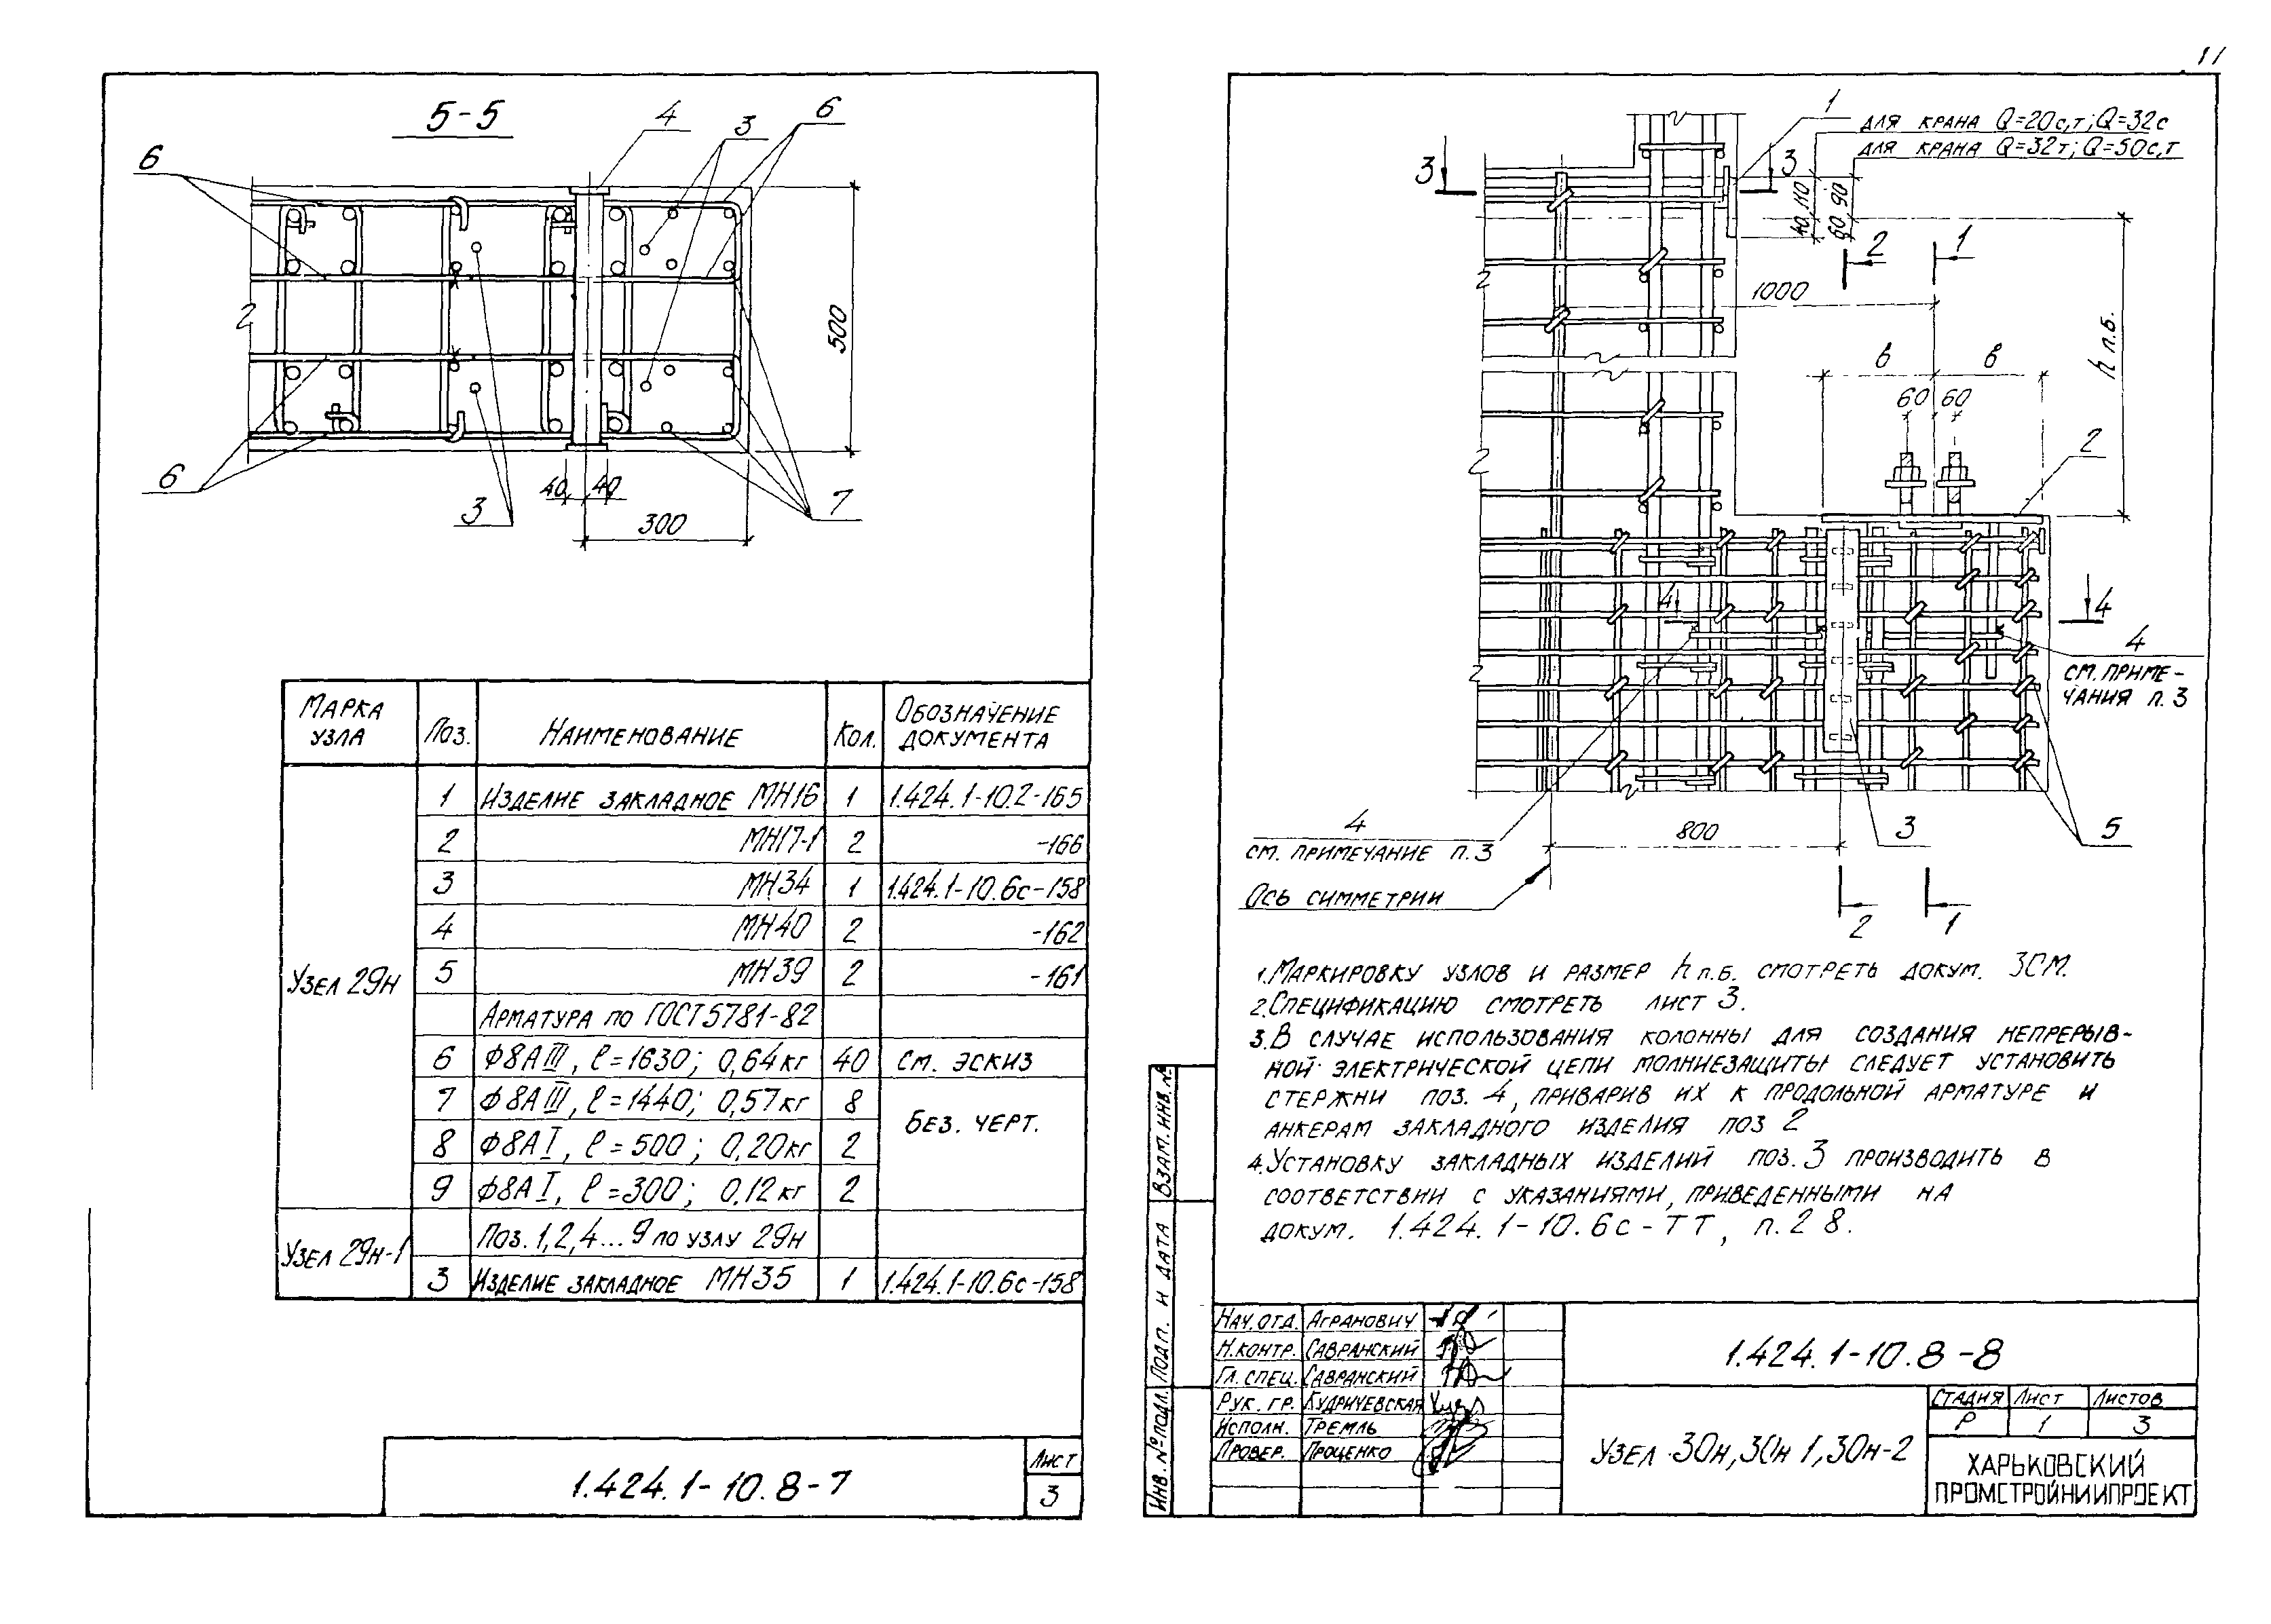 11
5-5
4
3
6
6
500
40 40
300
6
3
7
Марка узла
Поз.
Наименование
Кол.
Обозначение документа
Узел 29н
1 Изделие закладное МН16 1 1.424.1-10.2-165
2 МН17-1 2 -166
3 МН34 1 1.424.1-10.6с-158
4 МН40 2 -162
5 МН39 2 -161
Арматура по ГОСТ 5781-82
6 Ф8АIII, ℓ=1630; 0,64кг 40 См. эскиз
7 Ф8АIII, ℓ=1440; 0,57кг 8 Без. черт.
8 Ф8АI, ℓ=500; 0,20кг 2
9 Ф8АI, ℓ=300; 0,12кг 2
Узел 29н-1
Поз. 1,2,4...9 по узлу 29н
3 Изделие закладное МН35 1 1.424.1-10.6с-158
1.424.1-10.8-7
Лист
3
1
для крана Q=20с,т; Q=32с
для крана Q=32т; Q=50с,т
3 3
40 110
60 90
2 1
1000
h п.б.
в в
60 60
2
4 4
4
см. приме-
чания п.3
4
см. примечание п.3
800
3
5
Ось симметрии
2 1
1. Маркировку узлов и размер h п.б. смотреть докум. 3СМ.
2. Спецификацию смотреть лист 3.
3. В случае использования колонны для создания непрерыв-
ной электрической цепи молниезащиты следует установить
стержни поз. 4, приварив их к продольной арматуре и
анкерам закладного изделия поз 2
4. Установку закладных изделий поз. 3 производить в
соответствии с указаниями, приведенными на
докум. 1.424.1-10.6с-ТТ, п.28.
Инв. № подл. Подп. и дата Взам. инв. №
Нач. отд. Агранович
Н.контр. Савранский
Гл. спец. Савранский
Рук. гр. Кудричевская
Исполн. Тремль
Провер. Проценко
1.424.1-10.8-8
Узел 30н, 30н 1, 30н-2
Стадия Лист Листов
Р 1 3
ХАРЬКОВСКИЙ
ПРОМСТРОЙНИИПРОЕКТ